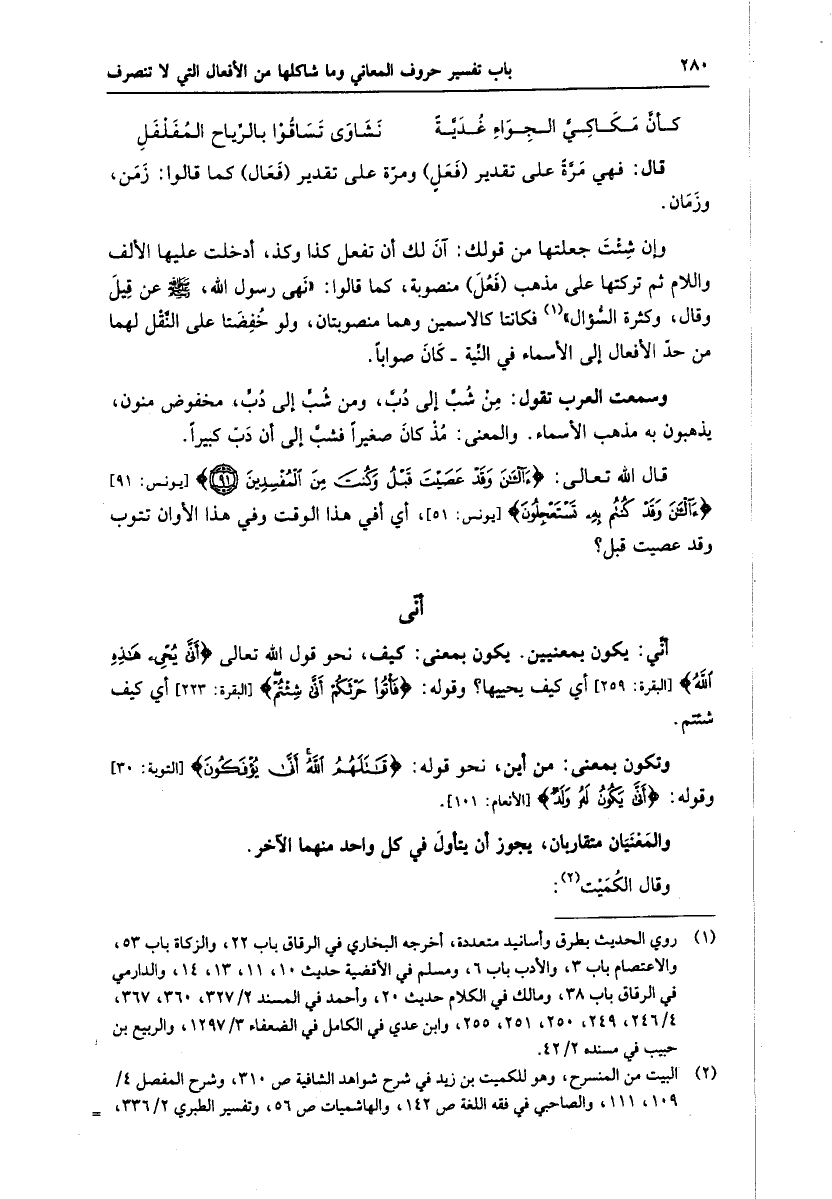 ٢٨٠ باب تفسير حروف المعاني وما شاكلها من الأفعال التي لا تتصرف
كـأنَّ مَـكَـاكِـيَّ الـجِـوَاءِ غُـدَيَّـةً نَـشَاوَى تَسَاقُوْا بـالـرِّيـاح الـمُـفَـلْـفَـلِ
قال: فهي مَرَّةً على تقدير (فَعَلٍ) ومرّة على تقدير (فَعَال) كما قالوا: زَمَن،
وزَمَان.
وإن شِئْتَ جعلتها من قولك: آنَ لك أن تفعل كذا وكذ، أدخلت عليها الألف
واللام ثم تركتها على مذهب (فَعُلَ) منصوبة، كما قالوا: «نَهى رسول الله، ﷺ عن قِيلَ
وقال، وكثرة السُّؤال»(١) فكانتا كالاسمين وهما منصوبتان، ولو خُفِضَتا على النَّقْل لهما
من حدّ الأفعال إلى الأسماء في النِّية ـ كَانَ صواباً.
وسمعت العرب تقول: مِنْ شُبَّ إلى دُبَّ، ومن شُبٍّ إلى دُبٍّ، مخفوض منون،
يذهبون به مذهب الأسماء. والمعنى: مُذْ كانَ صغيراً فشبَّ إلى أن دَبّ كبيراً.
قال الله تـعـالـى: ﴿ءَآلْـَٰٔنَ وَقَدْ عَصَيْتَ قَبْلُ وَكُنتَ مِنَ ٱلْمُفْسِدِينَ ۝٩١﴾ [يونس: ٩١]
﴿ءَآلْـَٰٔنَ وَقَدْ كُنتُم بِهِۦ تَسْتَعْجِلُونَ﴾ [يونس: ٥١]، أي أفي هذا الوقت وفي هذا الأوان تتوب
وقد عصيت قبل؟
أنّى
أنَّي: يكون بمعنيين. يكون بمعنى: كيف، نحو قول الله تعالى ﴿أَنَّىٰ يُحْىِۦ هَٰذِهِ
ٱللَّهُ﴾ [البقرة: ٢٥٩] أي كيف يحييها؟ وقوله: ﴿فَأْتُوا۟ حَرْثَكُمْ أَنَّىٰ شِئْتُمْ ۖ﴾ [البقرة: ٢٢٣] أي كيف
شئتم.
وتكون بمعنى: من أين، نحو قوله: ﴿قَٰتَلَهُمُ ٱللَّهُ ۚ أَنَّىٰ يُؤْفَكُونَ﴾ [التوبة: ٣٠]
وقوله: ﴿أَنَّىٰ يَكُونُ لَهُۥ وَلَدٌ﴾ [الأنعام: ١٠١].
والمَعْنَيَان متقاربان، يجوز أن يتأولَ في كل واحد منهما الآخر.
وقال الكُمَيْت(٢):
(١) روي الحديث بطرق وأسانيد متعددة، أخرجه البخاري في الرقاق باب ٢٢، والزكاة باب ٥٣،
والاعتصام باب ٣، والأدب باب ٦، ومسلم في الأقضية حديث ١٠، ١١، ١٣، ١٤، والدارمي
في الرقاق باب ٣٨، ومالك في الكلام حديث ٢٠، وأحمد في المسند ٢/ ٣٢٧، ٣٦٠، ٣٦٧،
٤/ ٢٤٦، ٢٤٩، ٢٥٠، ٢٥١، ٢٥٥، وابن عدي في الكامل في الضعفاء ٣/ ١٢٩٧، والربيع بن
حبيب في مسنده ٢/ ٤٢.
(٢) البيت من المنسرح، وهو للكميت بن زيد في شرح شواهد الشافية ص ٣١٠، وشرح المفصل ٤/
١٠٩، ١١١، والصاحبي في فقه اللغة ص ١٤٢، والهاشميات ص ٥٦، وتفسير الطبري ٢/ ٣٣٦، =